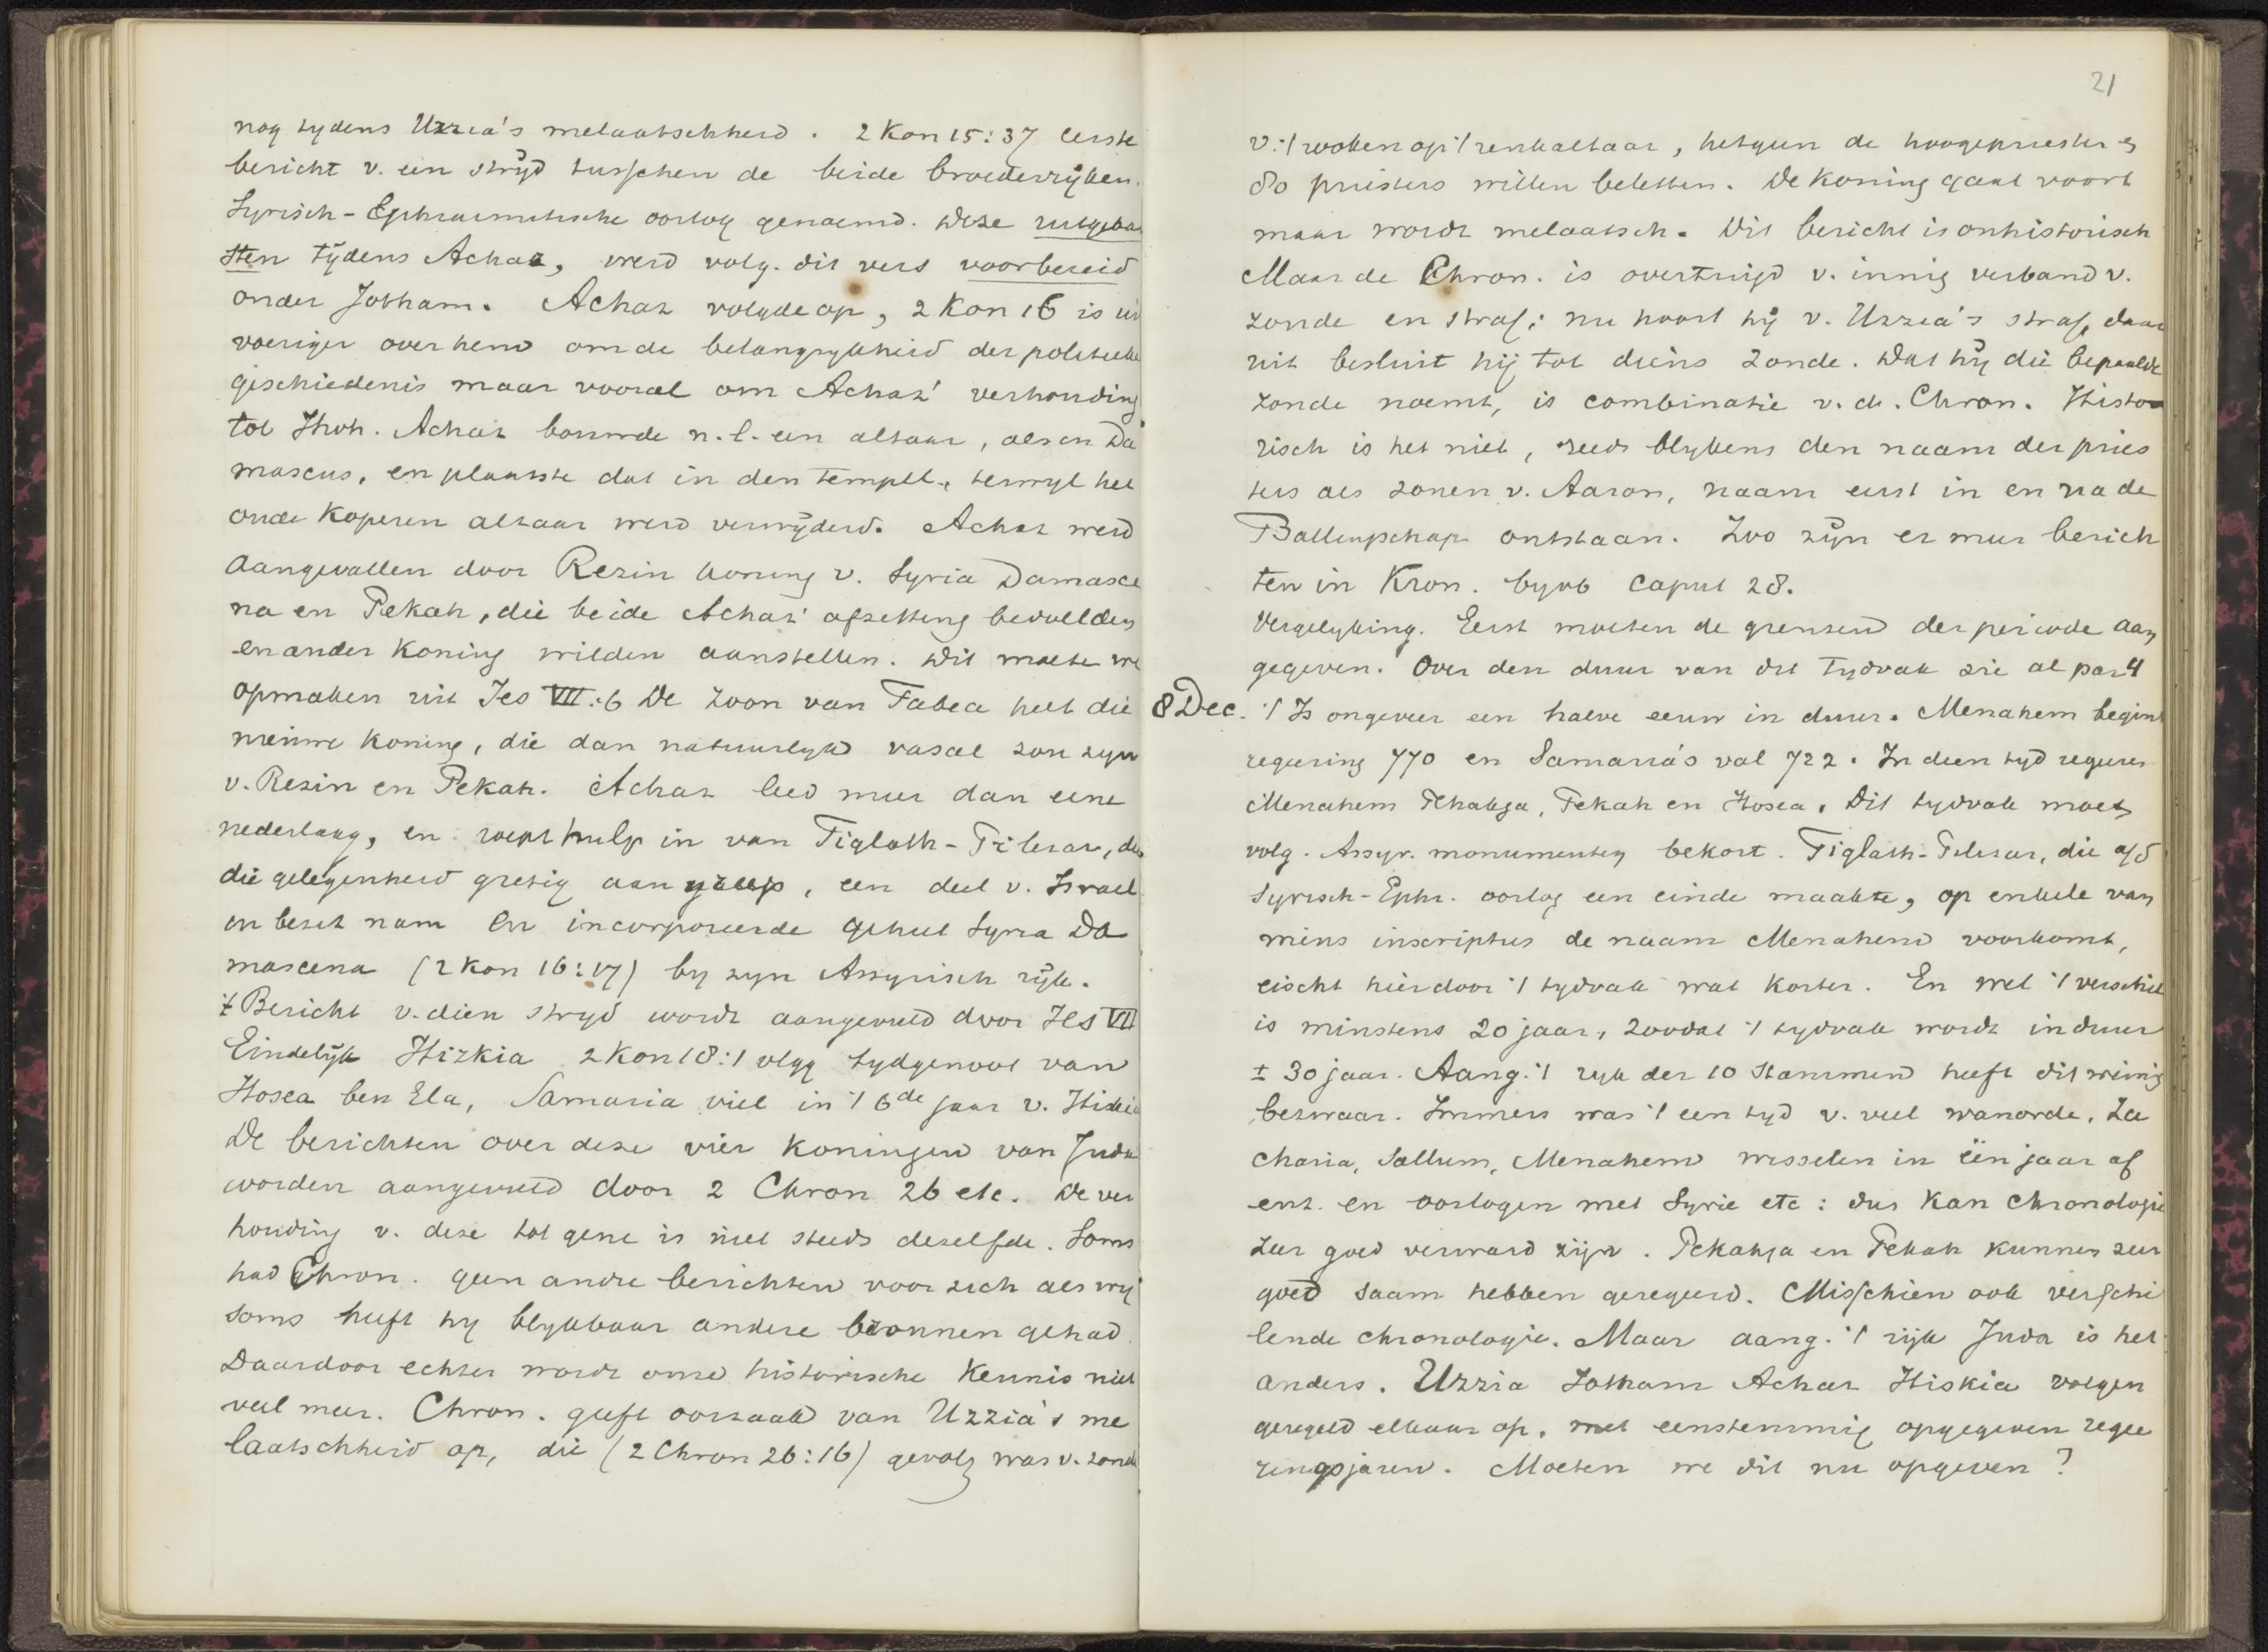 nog tydens Uzzia's melaatschheid. 2 Kon 15:37 eerste
bericht v. een stryd tusschen de beide broederryken.
Syrisch-Ephraimitische oorlog genoemd. Deze uitgebar
sten tydens Achaz, werd volg. dit vers voorbereid
onder Jotham. Achaz volgde op, 2 Kon 16 is uit
voeriger over hem om de belangrykheid der politieke
geschiedenis maar vooral om Achaz' verhouding
tot Jhvh. Achaz bouwde n.l. een altaar, als in Da
mascus, en plaatste dat in den tempel, terwyl het
oude koperen altaar werd verwyderd. Achaz werd
aangevallen door Rezin koning v. Syria Damasce
na en Pekah, die beide Achaz' afzetting bedoelden
en ander koning wilden aanstellen. Dit moeten we
opmaken uit Jes VII:6 De zoon van Tabea heet die
nieuwe koning, die dan natuurlyk vasal zou zyn
v. Rezin en Pekah. Achaz leed meer dan eene
nederlaag, en roept hulp in van Tiglath-Pilesar, die
die gelegenheid gretig aangreep, een deel v. Israel
in bezit nam en incorporeerde geheel Syria Da
mascena (2 Kon 16:17) by zyn Assyrisch ryk.
't Bericht v. dien stryd wordt aangevuld door Jes VII
Eindelyk Hizkia 2 Kon 18:1 vlgg tydgenoot van
Hosea ben Ela, Samaria viel in 't 6de jaar v. Hizkia
De berichten over deze vier koningen van Juda
worden aangevuld door 2 Chron 26 etc. De ver
houding v. deze tot gene is niet steeds dezelfde. Soms
had Chron. geen andre berichten voor zich als wy
soms heeft hy blykbaar andere bronnen gehad
Daardoor echter wordt onze historische kennis niet
veel meer. Chron. geeft oorzaak van Uzzia's me
laatschheid op, die (2 Chron 26:16) gevolg was v. zonde
21
v. 't rooken op 't reukaltaar, hetgeen de hoogepriester en
80 priesters willen beletten. De koning gaat voort
maar wordt melaatsch. Dit bericht is onhistorisch
Maar de Chron. is overtuigd v. innig verband v.
zonde en straf; nu hoort hy v. Uzzia's straf, daar
uit besluit hij tot diens zonde. Dat hy die bepaalde
zonde noemt, is combinatie v. d. Chron. Histo
risch is het niet, reeds blykens den naam der pries
ters als zonen v. Aaron, naam eerst in en na de
Ballingschap ontstaan. Zoo zyn er meer berich
ten in Kron. byvb caput 28.
Vergelyking. Eerst moeten de grenzen der periode aan
gegeven. Over den duur van dit tydvak zie al par 4
8 Dec. 't Is ongeveer een halve eeuw in duur. Menahem begint
regeering 770 en Samaria's val 722. In dien tyd regeeren
Menahem Pekahja, Pekah en Hosea. Dit tydvak moet
volg. Assyr. monumenten bekort. Tiglath-Pilesar, die a/d
Syrisch-Ephr. oorlog een einde maakte, op enkele van
wiens inscripties de naam Menahem voorkomt,
eischt hierdoor 't tydvak wat korter. En wel 't verschil
is minstens 20 jaar, zoodat 't tydvak wordt in duur
± 30 jaar. Aang. 't ryk der 10 stammen heeft dit weinig
bezwaar. Immers was 't een tyd v. veel wanorde. Za
charia, Sallum, Menahem wisselen in één jaar af
enz. en oorlogen met Syrie etc: dus kan chronologie
zeer goed verward zijn. Pekahja en Pekah kunnen zeer
goed saam hebben geregeerd. Misschien ook verschi
lende chronologie. Maar aang. 't rijk Juda is het
anders. Uzzia Jotham Achaz Hiskia volgen
geregeld elkaar op, met eenstemmig opgegeven regee
ringsjaren. Moeten we dit nu opgeven?